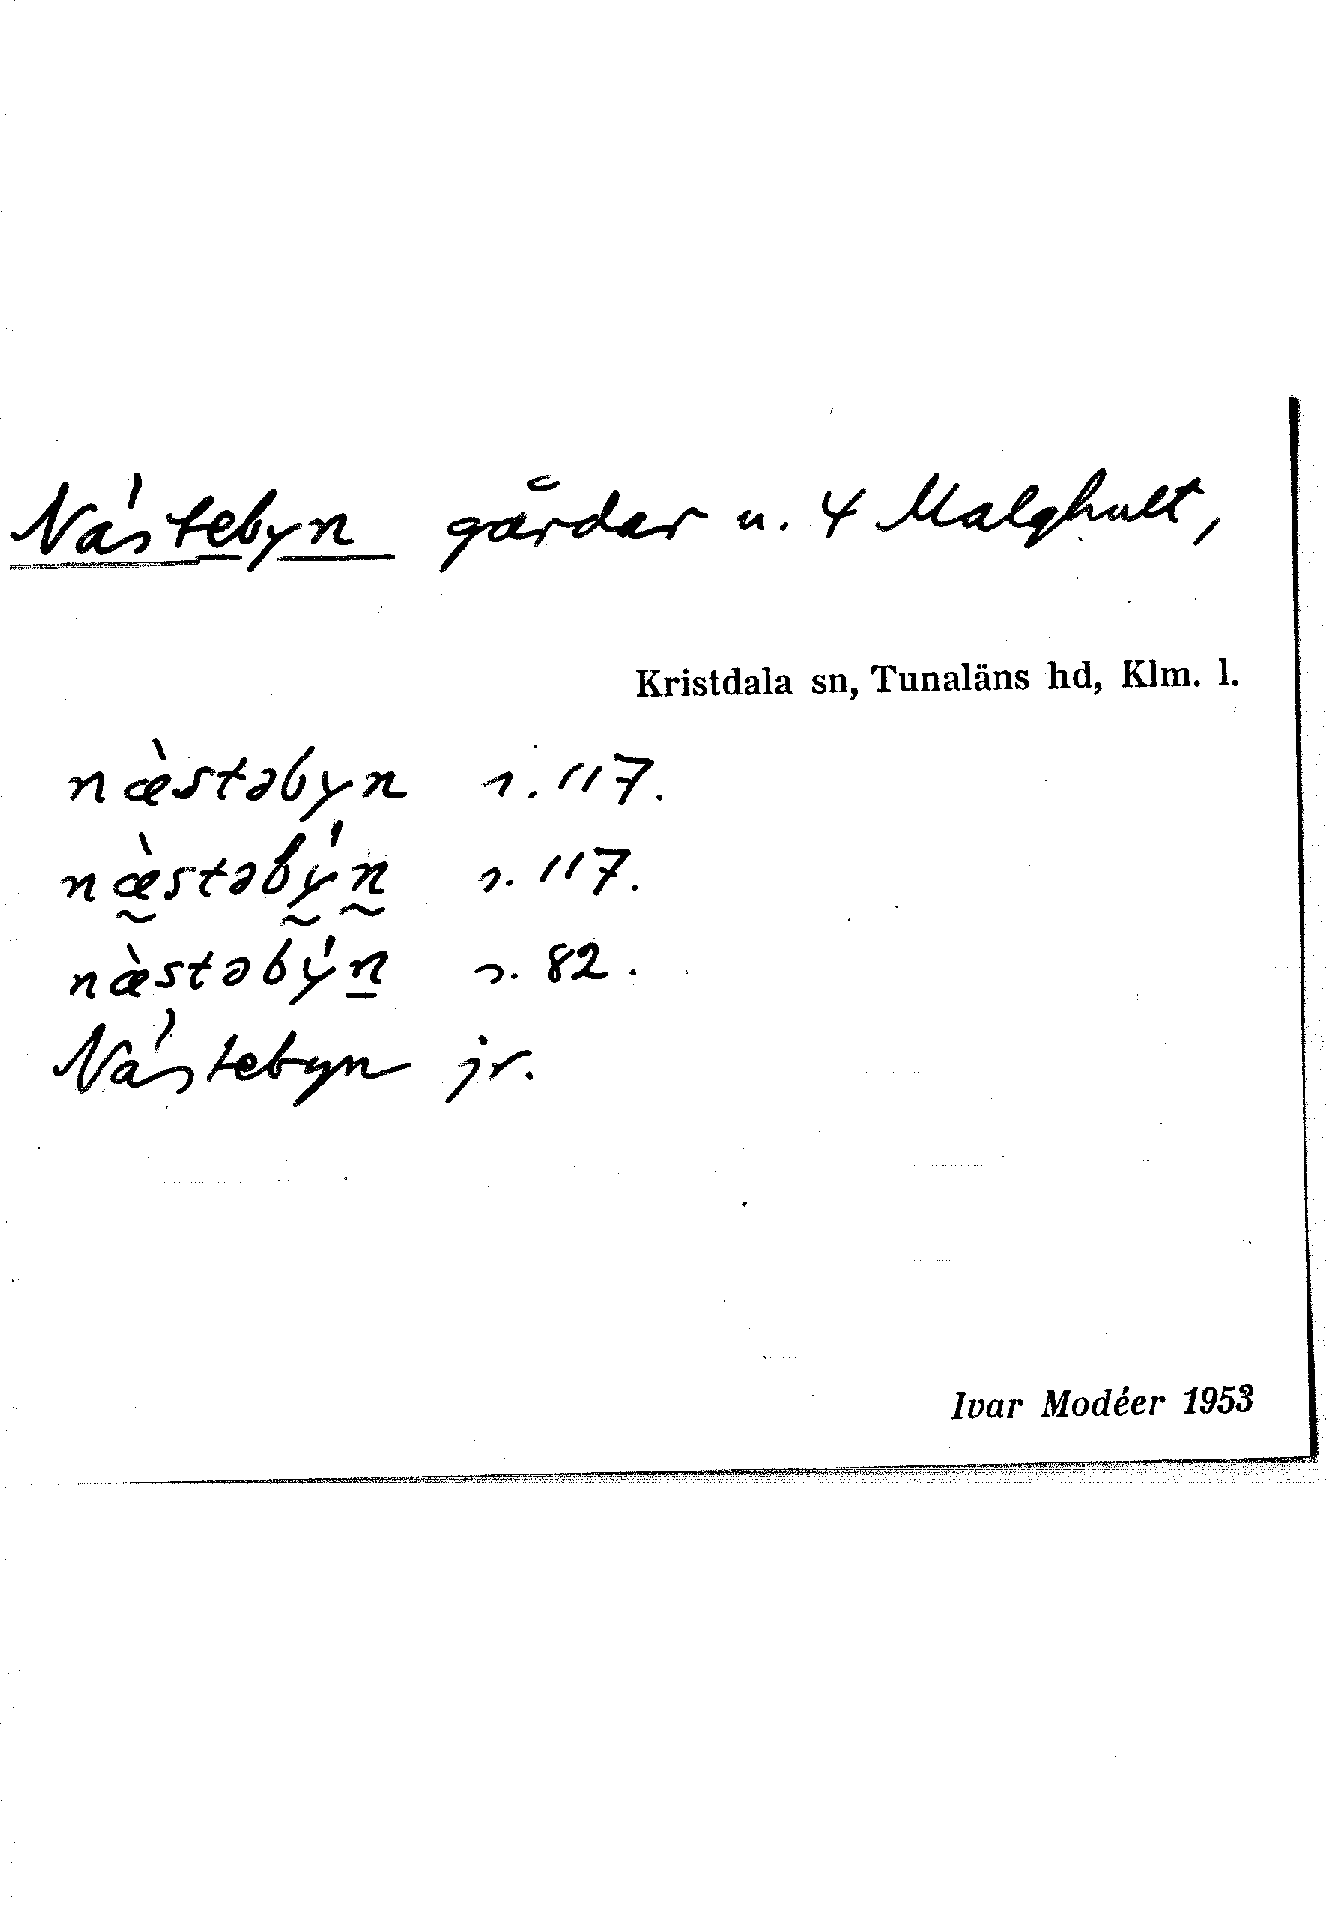 Nästebyn gårdar u. 4 Malghult,
Kristdala sn, Tunaläns hd, Klm. l.
næ̀stəbyn s. 117.
næ̰̀stəbý̰n̰ s. 117.
næ̀stəbýn̲ s. 82.
Nästebyn jr.
Ivar Modéer 1953